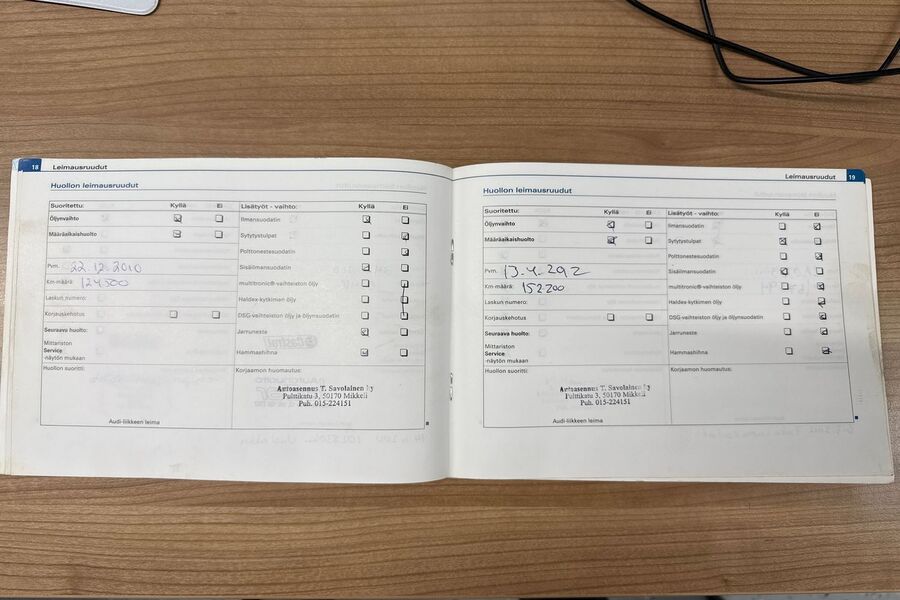 18 Leimausruudut
Huollon leimausruudut
Suoritettu: Kyllä Ei
Öljynvaihto
Määräaikaishuolto
Pvm. 22.12.2010
Km-määrä: 124500
Laskun numero:
Korjauskehotus
Seuraava huolto:
Mittariston
Service
-näytön mukaan
Huollon suoritti:
Audi-liikkeen leima
Lisätyöt - vaihto: Kyllä Ei
Ilmansuodatin
Sytytystulpat
Polttonestesuodatin
Sisäilmansuodatin
multitronic®-vaihteiston öljy
Haldex-kytkimen öljy
DSG-vaihteiston öljy ja öljynsuodatin
Jarruneste
Hammashihna
Korjaamon huomautus:
Autoasennus T. Savolainen Ky
Pulttikatu 3, 50170 Mikkeli
Puh. 015-224151
Leimausruudut 19
Huollon leimausruudut
Suoritettu: Kyllä Ei
Öljynvaihto
Määräaikaishuolto
Pvm. 13.4.292
Km-määrä: 152200
Laskun numero:
Korjauskehotus
Seuraava huolto:
Mittariston
Service
-näytön mukaan
Huollon suoritti:
Audi-liikkeen leima
Lisätyöt - vaihto: Kyllä Ei
Ilmansuodatin
Sytytystulpat
Polttonestesuodatin
Sisäilmansuodatin
multitronic®-vaihteiston öljy
Haldex-kytkimen öljy
DSG-vaihteiston öljy ja öljynsuodatin
Jarruneste
Hammashihna
Korjaamon huomautus:
Autoasennus T. Savolainen Ky
Pulttikatu 3, 50170 Mikkeli
Puh. 015-224151